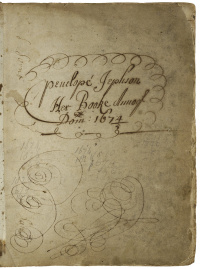 Penelope Jephson
Her Booke Annoq
Dom: 1674